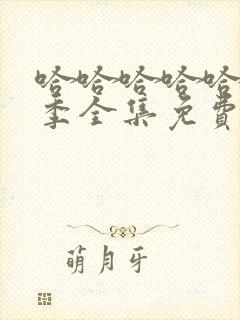 哈哈哈哈哈
季全集免費
萌月牙